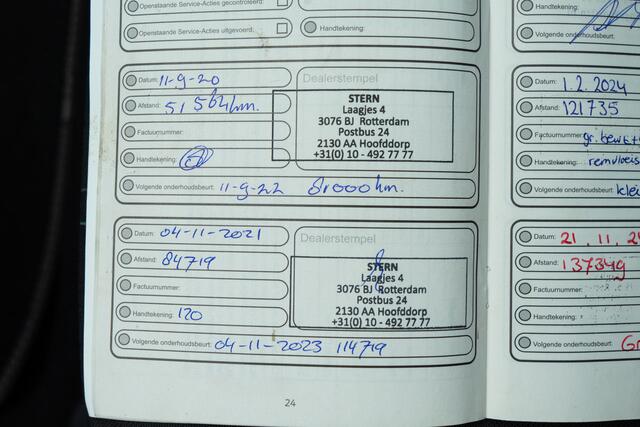 Openstaande Service-Acties gecontroleerd:
Openstaande Service-Acties uitgevoerd:
Handtekening:
Datum: 11-9-20
Dealerstempel
Afstand: 51564km.
Factuurnummer:
Handtekening:
STERN
Laagjes 4
3076 BJ Rotterdam
Postbus 24
2130 AA Hoofddorp
+31(0) 10 - 492 77 77
Volgende onderhoudsbeurt: 11-9-22 81000km.
Datum: 04-11-2021
Dealerstempel
Afstand: 84719
Factuurnummer:
Handtekening: 120
STERN
Laagjes 4
3076 BJ Rotterdam
Postbus 24
2130 AA Hoofddorp
+31(0) 10 - 492 77 77
Volgende onderhoudsbeurt: 04-11-2023 114719
24
Handtekening:
Volgende onderhoudsbeurt:
Datum: 1.2.2024
Afstand: 121735
Factuurnummer: gr.
Handtekening:
Volgende onderhoudsbeurt:
Datum: 21.11.
Afstand: 137349
Factuurnummer:
Handtekening:
Volgende onderhoudsbeurt: